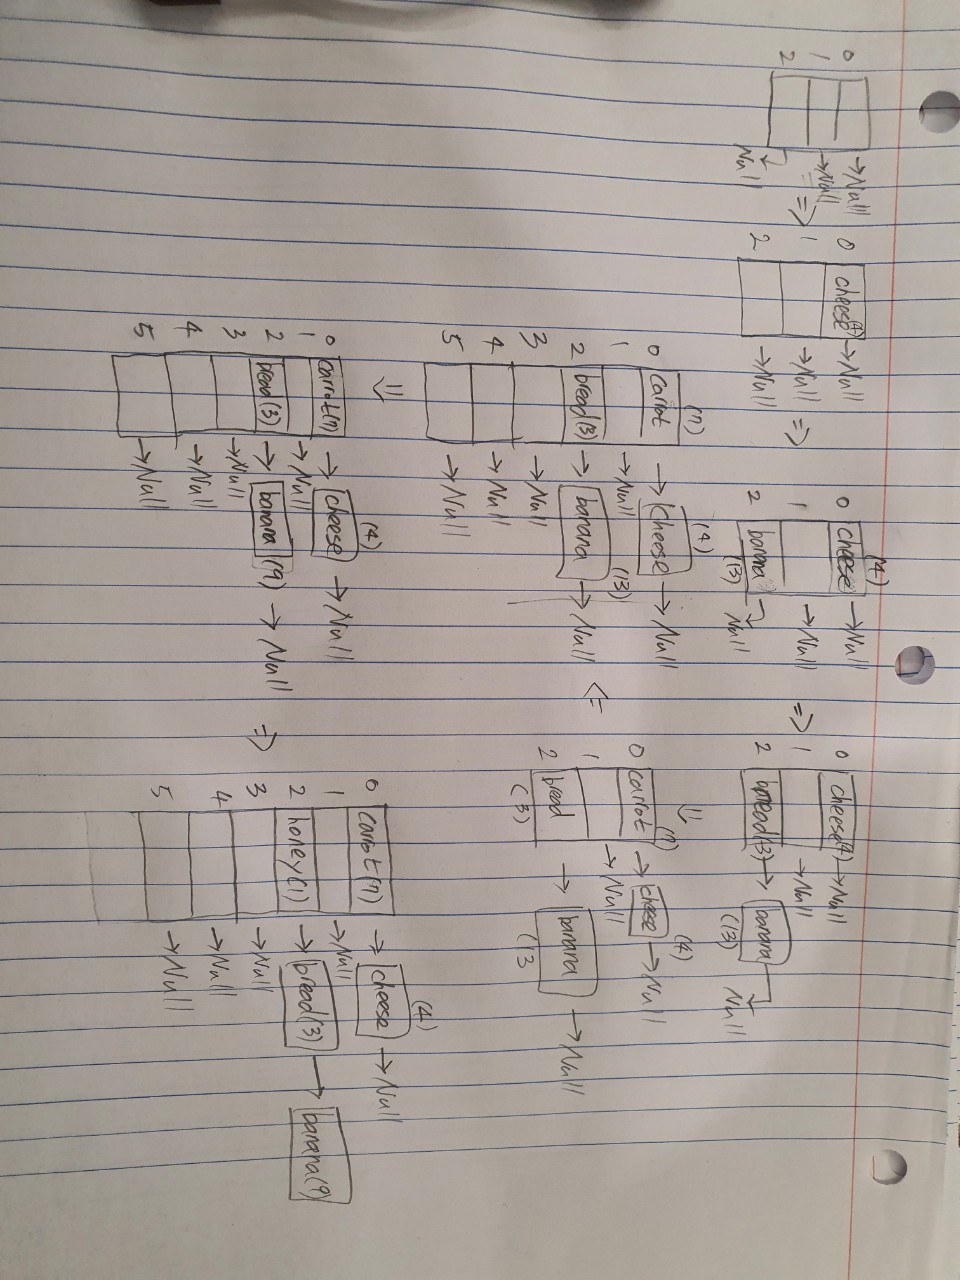 0 → Null
1 → Null
2 → Null
⇒
0 cheese(4) → Null
1 → Null
2 → Null
⇒
(4)
0 cheese → Null
1 → Null
2 banana → Null
(13)
⇒
0 cheese(4) → Null
1 → Null
2 bread(3) → banana → Null
(13)
⇓
(7) (4)
0 carrot → cheese → Null
1 → Null
2 bread → banana → Null
(3) (13
⇐
(7) (4)
0 carrot → cheese → Null
1 → Null (13)
2 bread(3) → banana → Null
3 → Null
4 → Null
5 → Null
⇓
(4)
0 carrot(7) → cheese → Null
1 → Null
2 bread(3) → banana (9) → Null
3 → Null
4 → Null
5 → Null
⇒
(4)
0 carrot(7) → cheese → Null
1 → Null
2 honey(1) → bread(3) → banana(9)
3 → Null
4 → Null
5 → Null